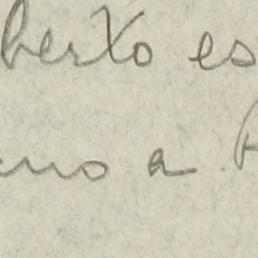 berto es
no a